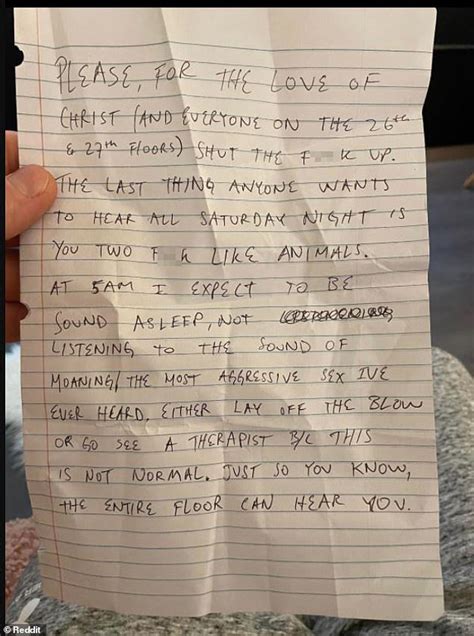 PLEASE, FOR THE LOVE OF
CHRIST (AND EVERYONE ON THE 26th
& 27th FLOORS) SHUT THE F K UP.
THE LAST THING ANYONE WANTS
TO HEAR ALL SATURDAY NIGHT IS
YOU TWO F K LIKE ANIMALS.
AT 5AM I EXPECT TO BE
SOUND ASLEEP, NOT
LISTENING TO THE SOUND OF
MOANING/THE MOST AGGRESSIVE SEX IVE
EVER HEARD. EITHER LAY OFF THE BLOW
OR GO SEE A THERAPIST B/C THIS
IS NOT NORMAL. JUST SO YOU KNOW,
THE ENTIRE FLOOR CAN HEAR YOU.
© Reddit